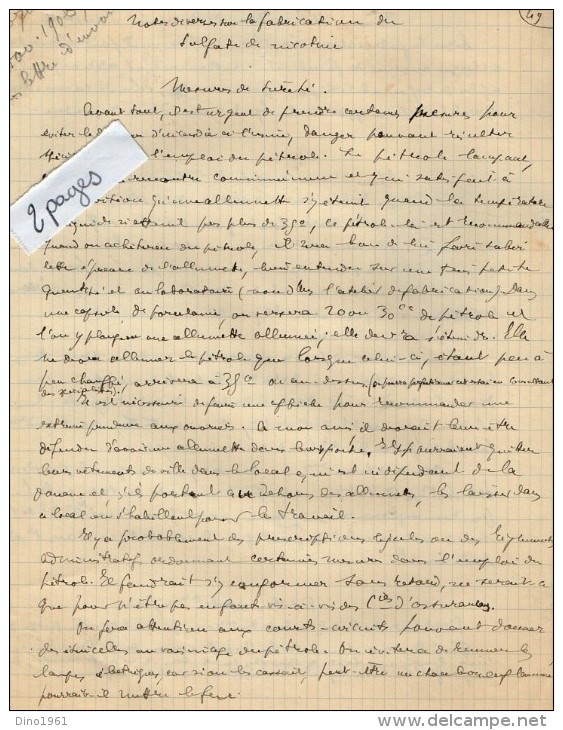 49
nov. 1906
lettre d'envoi
Notes diverses sur la fabrication du
Sulfate de nicotine
Mesures de Sûreté.
Avant tout, il est urgent de prendre certaines mesures pour
éviter le d'incendie à l'usine, danger pouvant résulter
l'emploi du pétrole. Le pétrole lampant,
rencontre communément et qui satisfait à
qu'une allumette s'y éteint quand la température
n'atteint pas plus de 35°, ce pétrole là est recommandable
quand on achètera du pétrole, il sera bon de lui faire subir
cette épreuve de l'allumette, bien entendu sur une très petite
quantité et au laboratoire (non dans l'atelier de fabrication). Dans
une capsule de porcelaine, on versera 20 ou 30cc de pétrole et
l'on y plongera une allumette allumée; elle devra s'éteindre. Elle
ne devra allumer le pétrole que lorsque celui-ci, étant peu à
peu chauffé, arrivera à 35° ou au-dessus. (
Il est nécessaire de faire une affiche pour recommander une
extrême prudence aux ouvriers. À mon avis il devrait leur être
défendu d'avoir une allumette dans leur poche. Ils pourraient quitter
leurs vêtements de ville dans le local qui est indépendant de la
et, s'ils portent au dehors des allumettes, les laisser dans
ce local où s'habillent pour le travail.
Il y a probablement des prescriptions légales ou des règlements
administratifs ordonnant certaines mesures dans l'emploi du
pétrole. Il faudrait s'y conformer sans retard, ne serait-ce
que pour n'être pas en faute vis-à-vis des Cies d'assurances.
On fera attention aux courts-circuits pouvant donner
des étincelles au voisinage du pétrole. On évitera de remuer les
lampes électriques, car si on les cassait, peut-être un charbon encore lumineux
pourrait-il mettre le feu.
2 pages
Dino1961
delcampe.net